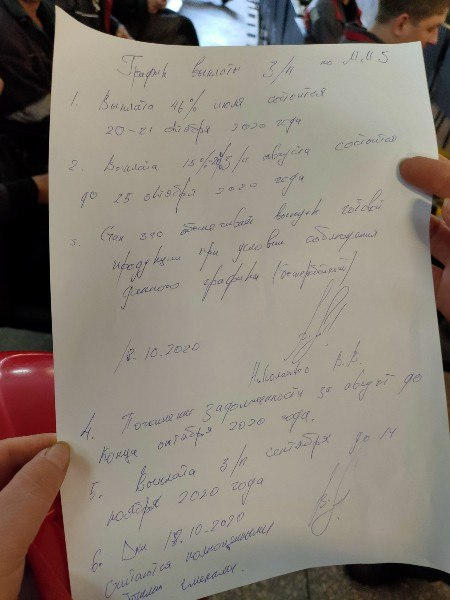 График выплаты З/п по М.И.5
1. Выплата 46% июля состоится
20-21 октября 2020 года
2. Выплата 15% З/п августа состоится
до 23 октября 2020 года
3. Цех 310 обеспечивает выпуск готовой
продукции при условии соблюдения
данного графика
18.10.2020
В.В.
4. Погашение задолженности за август до
конца октября 2020 года.
5. Выплата З/п сентября до 14
ноября 2020 года
6. Дни 18.10.2020
считаются полноценными